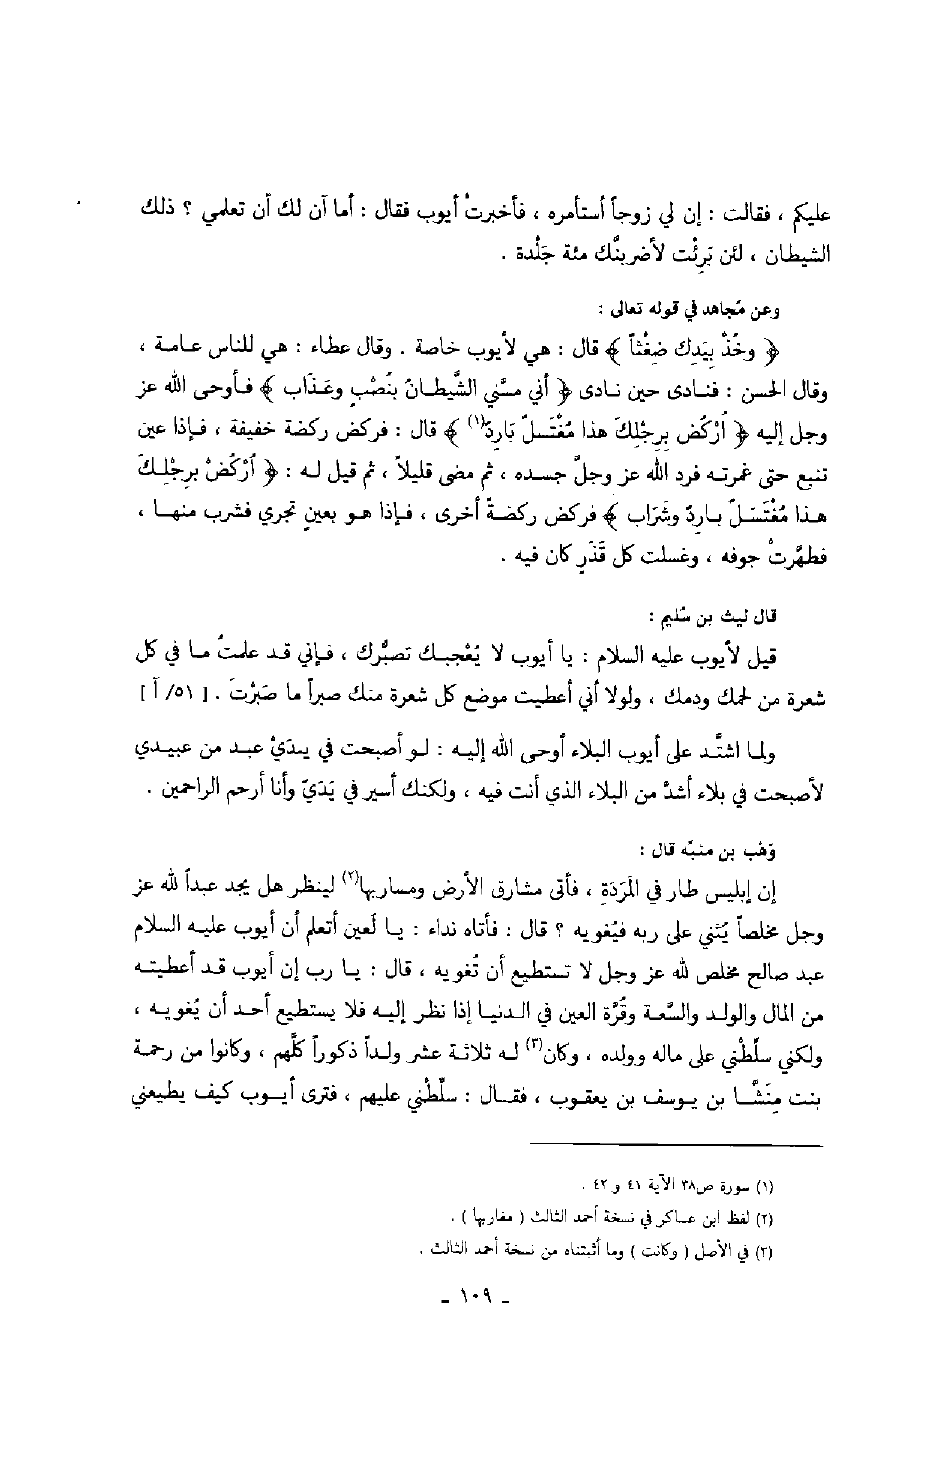 عليكم ، فقالت : إن لي زوجاً أستأمره ، فأخبرتْ أيوب فقال : أما آن لك أن تعلمي ؟ ذلك
الشيطان ، لئن بَرِئْت لأضربنَّك مئة جَلْدة .
وعن مُجاهد في قوله تعالى :
﴿ وخُذْ بِيَدِك ضِغْثاً ﴾ قال : هي لأيوب خاصة . وقال عطاء : هي للناس عامة ،
وقال الحسن : فنادى حين نادى ﴿ أني مسَّني الشَّيطانُ بنُصْبٍ وعَذَاب ﴾ فأوحى الله عز
وجل إليه ﴿ اُرْكُض بِرِجْلِكَ هذا مُغْتَسَلٌ بَارِدٌ(١) ﴾ قال : فركض ركضة خفيفة ، فإذا عين
تنبع حتى غمرته فرد الله عز وجلَّ جسده ، ثم مضى قليلاً ، ثم قيل له : ﴿ اُرْكُضْ بِرِجْلِكَ
هذا مُغْتَسَلٌ باردٌ وشَرَاب ﴾ فركض ركضةً أخرى ، فإذا هو بعينٍ تجري فشرب منها ،
فطهَّرتْ جوفه ، وغسلت كل قَذَرٍ كان فيه .
قال ليث بن سُليم :
قيل لأيوب عليه السلام : يا أيوب لا يُعْجبك تصبُّرك ، فإني قد علمتُ ما في كل
شعرة من لحمك ودمك ، ولولا أني أعطيت موضع كل شعرة منك صبراً ما صَبَرْتَ . [ ٥١/ أ ]
ولما اشتَّد على أيوب البلاء أوحى الله إليه : لو أصبحت في يدَيْ عبد من عبيدي
لأصبحت في بلاء أشدَّ من البلاء الذي أنت فيه ، ولكنك أسير في يَدَيّ وأنا أرحم الراحمين .
وَهْب بن منبّه قال :
إن إبليس طار في المَرَدَةِ ، فأتى مشارق الأرض ومساربها(٢) لينظر هل يجد عبداً لله عز
وجل مخلصاً يُثني على ربه فيُغويه ؟ قال : فأتاه نداء : يا لَعين أتعلم أن أيوب عليه السلام
عبد صالح مخلص لله عز وجل لا تستطيع أن تُغويه ، قال : يا رب إن أيوب قد أعطيته
من المال والولد والسَّعة وقُرَّة العين في الدنيا إذا نظر إليه فلا يستطيع أحد أن يُغويه ،
ولكني سلِّطْني على ماله وولده ، وكان(٣) له ثلاثة عشر ولداً ذكوراً كلُّهم ، وكانوا من رحمة
بنت مِنَشَّا بن يوسف بن يعقوب ، فقال : سلِّطْني عليهم ، فترى أيوب كيف يطيعني
(١) سورة ص٣٨ الآية ٤١ و ٤٢ .
(٢) لفظ ابن عساكر في نسخة أحمد الثالث ( مغاربها ) .
(٣) في الأصل ( وكانت ) وما أثبتناه من نسخة أحمد الثالث .
- ١٠٩ -